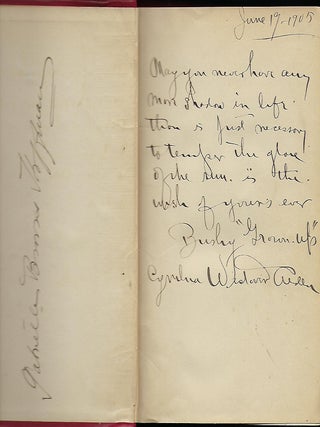 June 19-1905
May you never have any
more shadow in life
than is just necessary
to temper the glare
of the sun. is the
wish of yours ever
Busby "Grown-ups"
Cynthia Westover Alden
Gabrielle